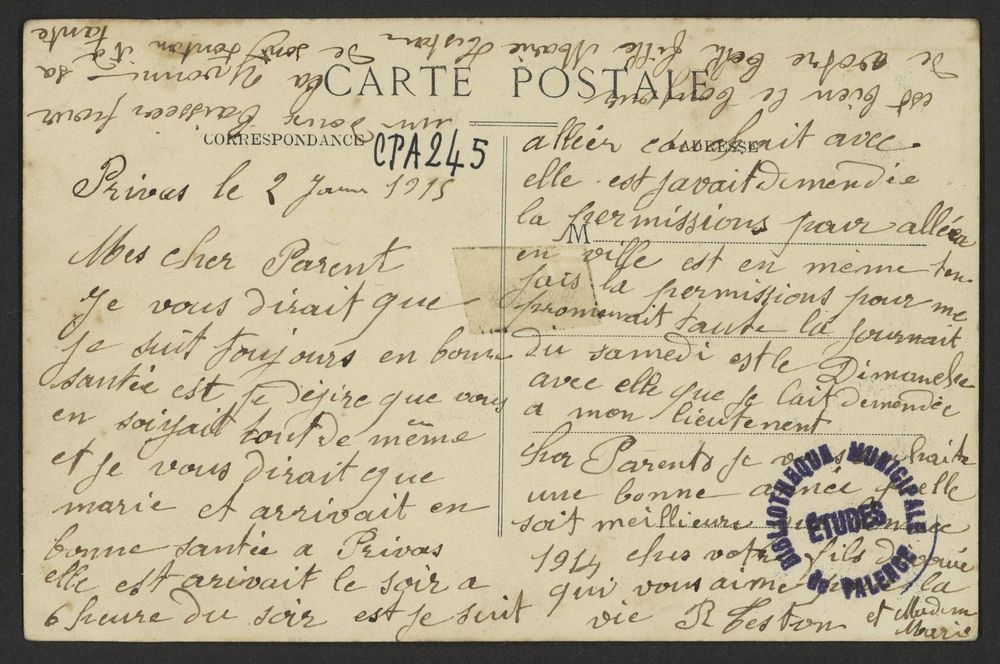 CARTE POSTALE
CORRESPONDANCE
ADRESSE
CPA245
M
Privas le 2 1915
Mes cher Parent
Je vous dirait que
je suit toujours en bonne
santée est je désire que vous
en soiyait tout de même
et je vous dirait que
marie et arrivait en
bonne santée a Privas
elle est arivait le soir a
6 heure du soir est je suit
alléer couchait avec
elle est javait demendée
la permissions pour alléer
en ville est en mème tem
fais la permissions pour me
promenait toute la journait
du samedi est le Dimanche
avec elle que je lait demendée
a mon lieutenent
cher Parents je vous
une bonne année quelle
soit meillieure
1914 cher votre fils
qui vous aime la
vie R Teston et Madame
Marie
un doux baisseer pour
la Yvonne sa
tante
de son tonton
est bien le bonjour
de votre bell fille Marie Teston
BIBLIOTHEQUE MUNICIPALE
ÉTUDES
de VALENCE